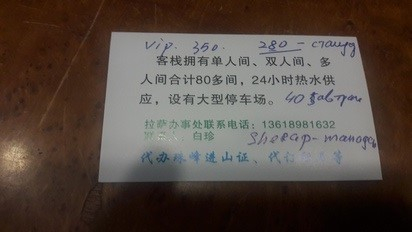 vip. 350. 280 - станд
客栈拥有单人间、双人间、多
人间合计80多间，24小时热水供
应，设有大型停车场。 40 завтрак
拉萨办事处联系电话：13618981632
白珍 Sherap-manager
代办珠峰进山证、代订